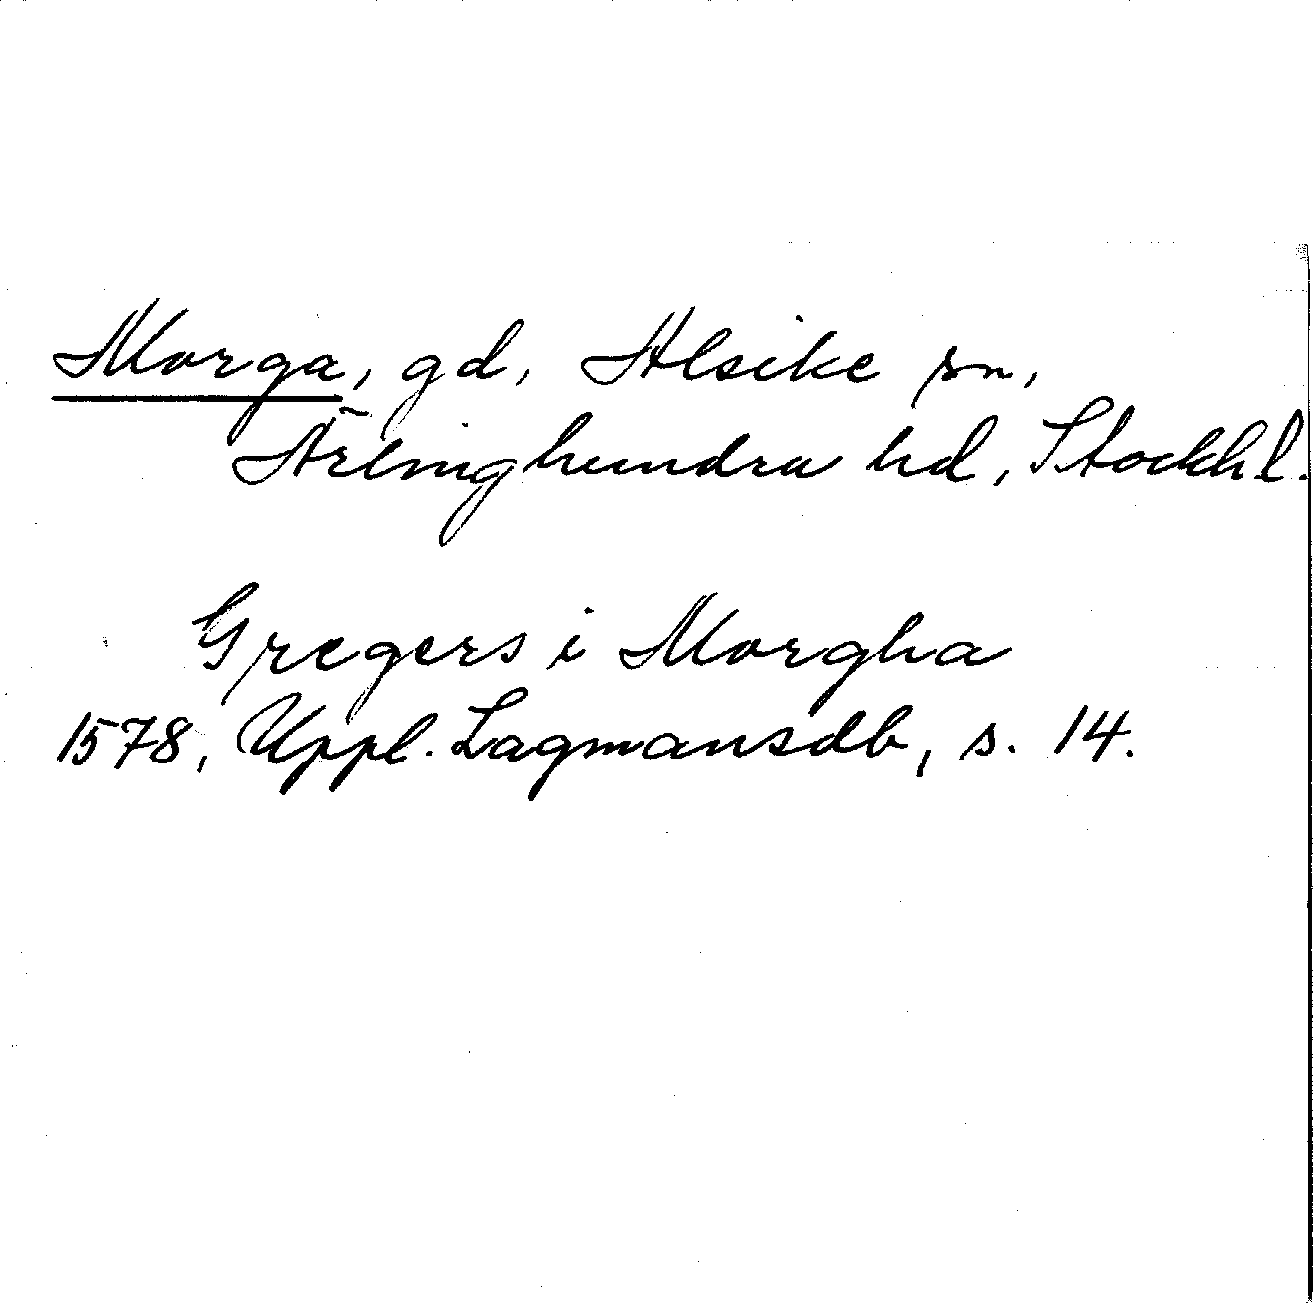 Morga, gd, Alsike sn,
Ärlinghundra hd, Stockhl.
Gregers i Morgha
1578, Uppl. Lagmansdb, s. 14.